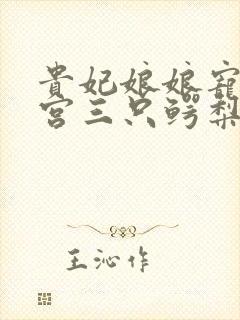 貴妃娘娘寵
宮三只鳄梨
王沁作